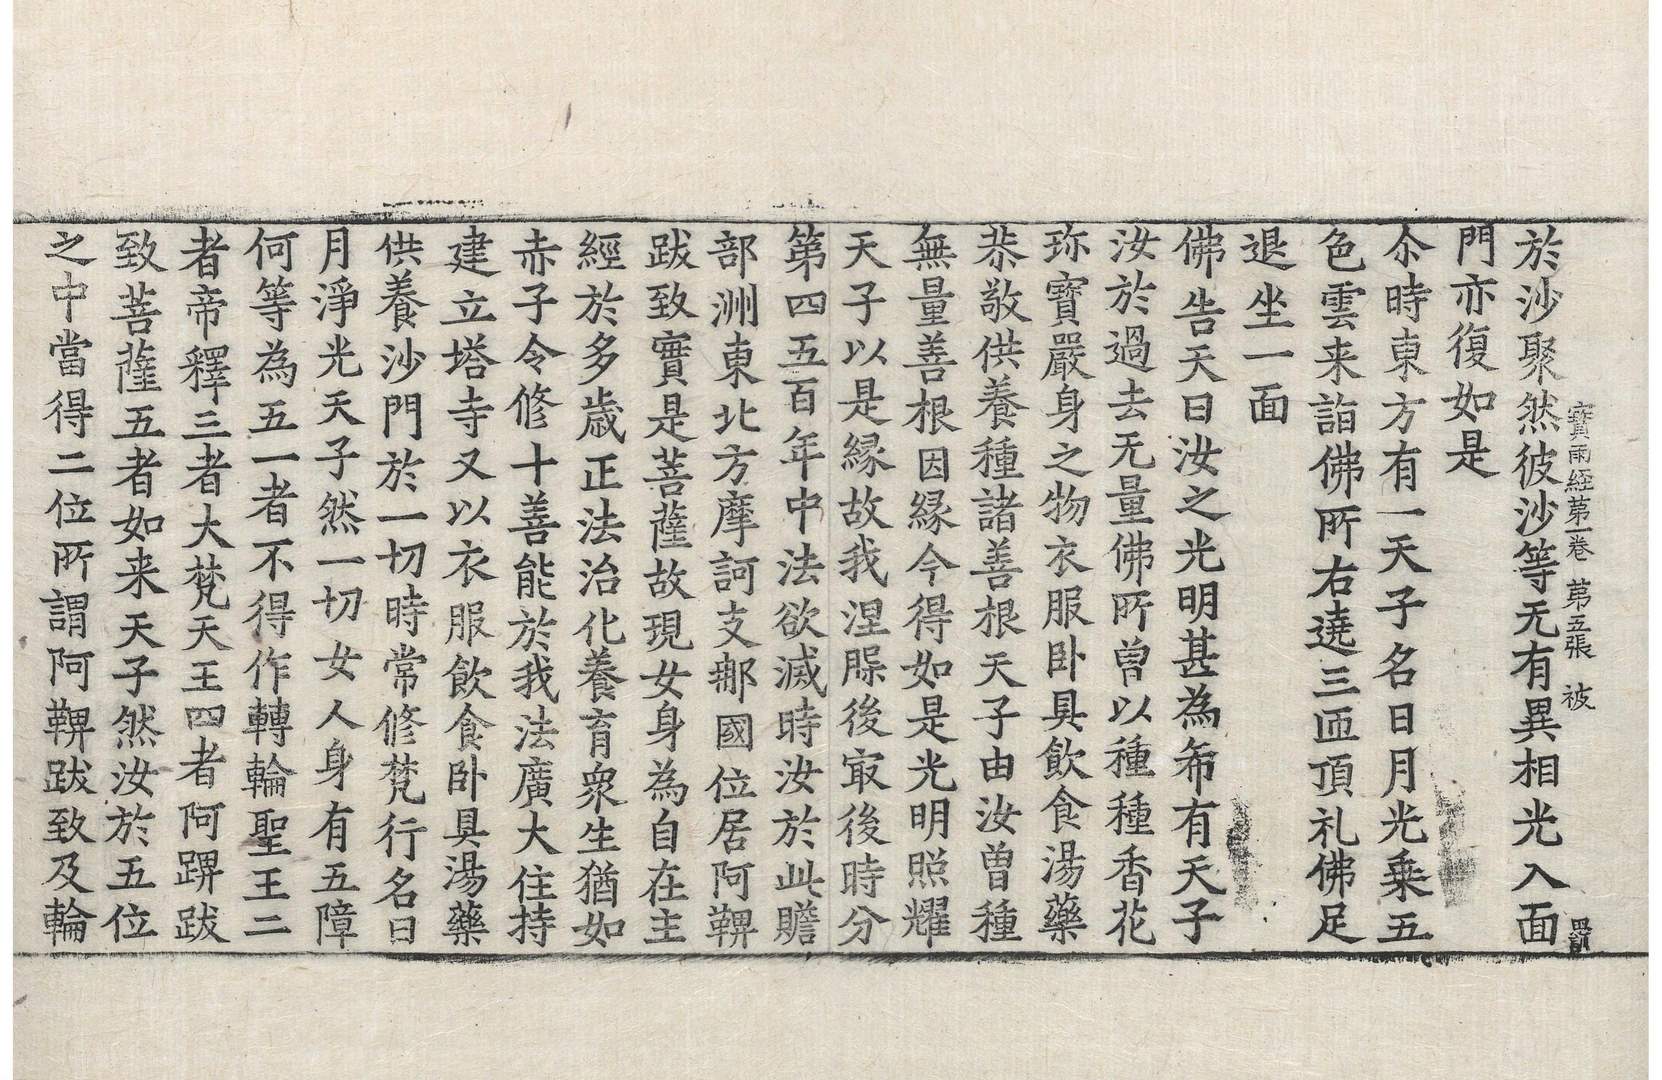 寳雨経第一卷 苐五張 被
於沙聚然彼沙等无有異相光入面
門亦復如是
尒時東方有一天子名日月光乗五
色雲来詣佛所右遶三迊頂礼佛足
退坐一面
佛告天曰汝之光明甚為希有天子
汝於過去无量佛所曾以種種香花
珎寳嚴身之物衣服卧具飲食湯藥
恭敬供養種諸善根天子由汝曾種
無量善根因縁今得如是光明照耀
天子以是縁故我涅腪後㝡後時分
第四五百年中法欲滅時汝於此贍
部洲東北方摩訶支那國位居阿鞞
跋致實是菩薩故現女身為自在主
經於多歳正法治化養育衆生猶如
赤子令修十善能於我法廣大住持
建立塔寺又以衣服飲食卧具湯藥
供養沙門於一切時常修梵行名曰
月淨光天子然一切女人身有五障
何等為五一者不得作轉輪聖王二
者帝釋三者大梵天王四者阿鞞跋
致菩薩五者如来天子然汝於五位
之中當得二位所謂阿鞞跋致及輪